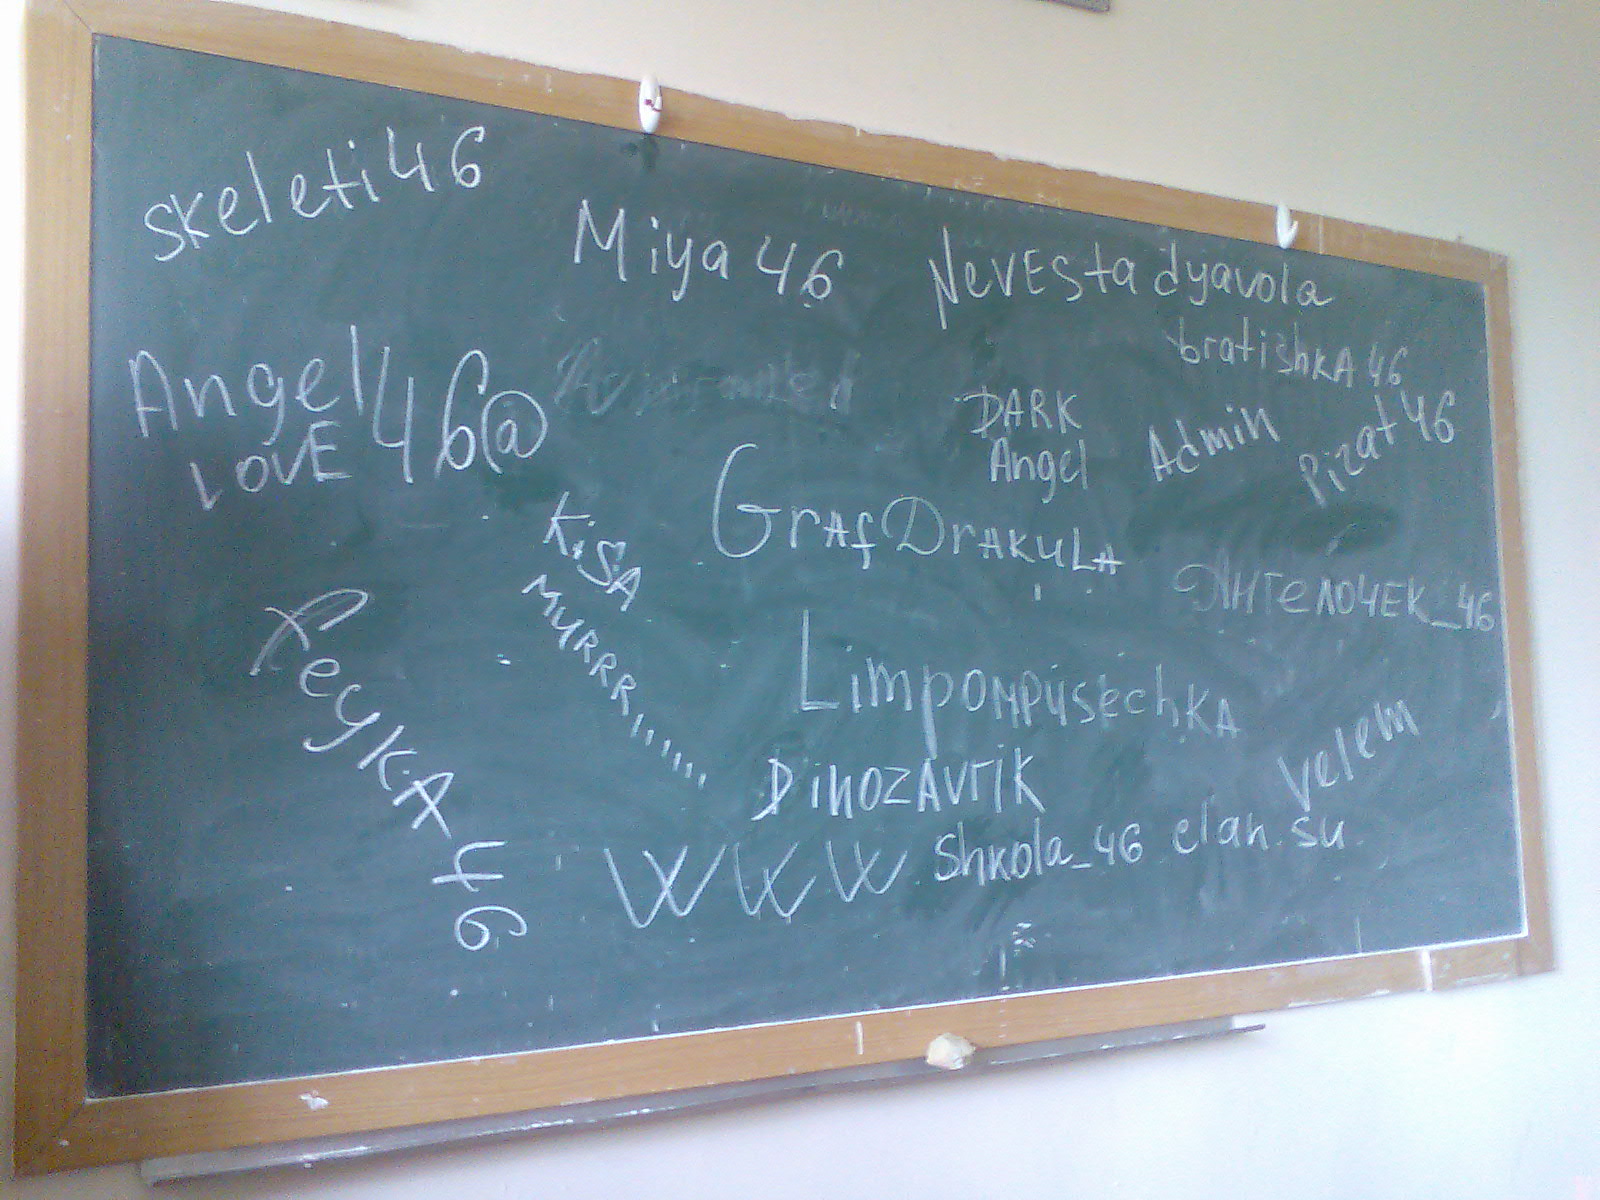 skeleti46
Miya 46
Nevesta dyavola
bratishkA 46
Angel 46@
LOVE
DARK
Angel
Admin
Pizat 46
GrafDrakula
KiSA
MURRR,,,,,,
Ангелочек_46
FeyKA 46
LimpompusechkA
velem
DinozAvrik
WWW.Shkola_46 clan.su